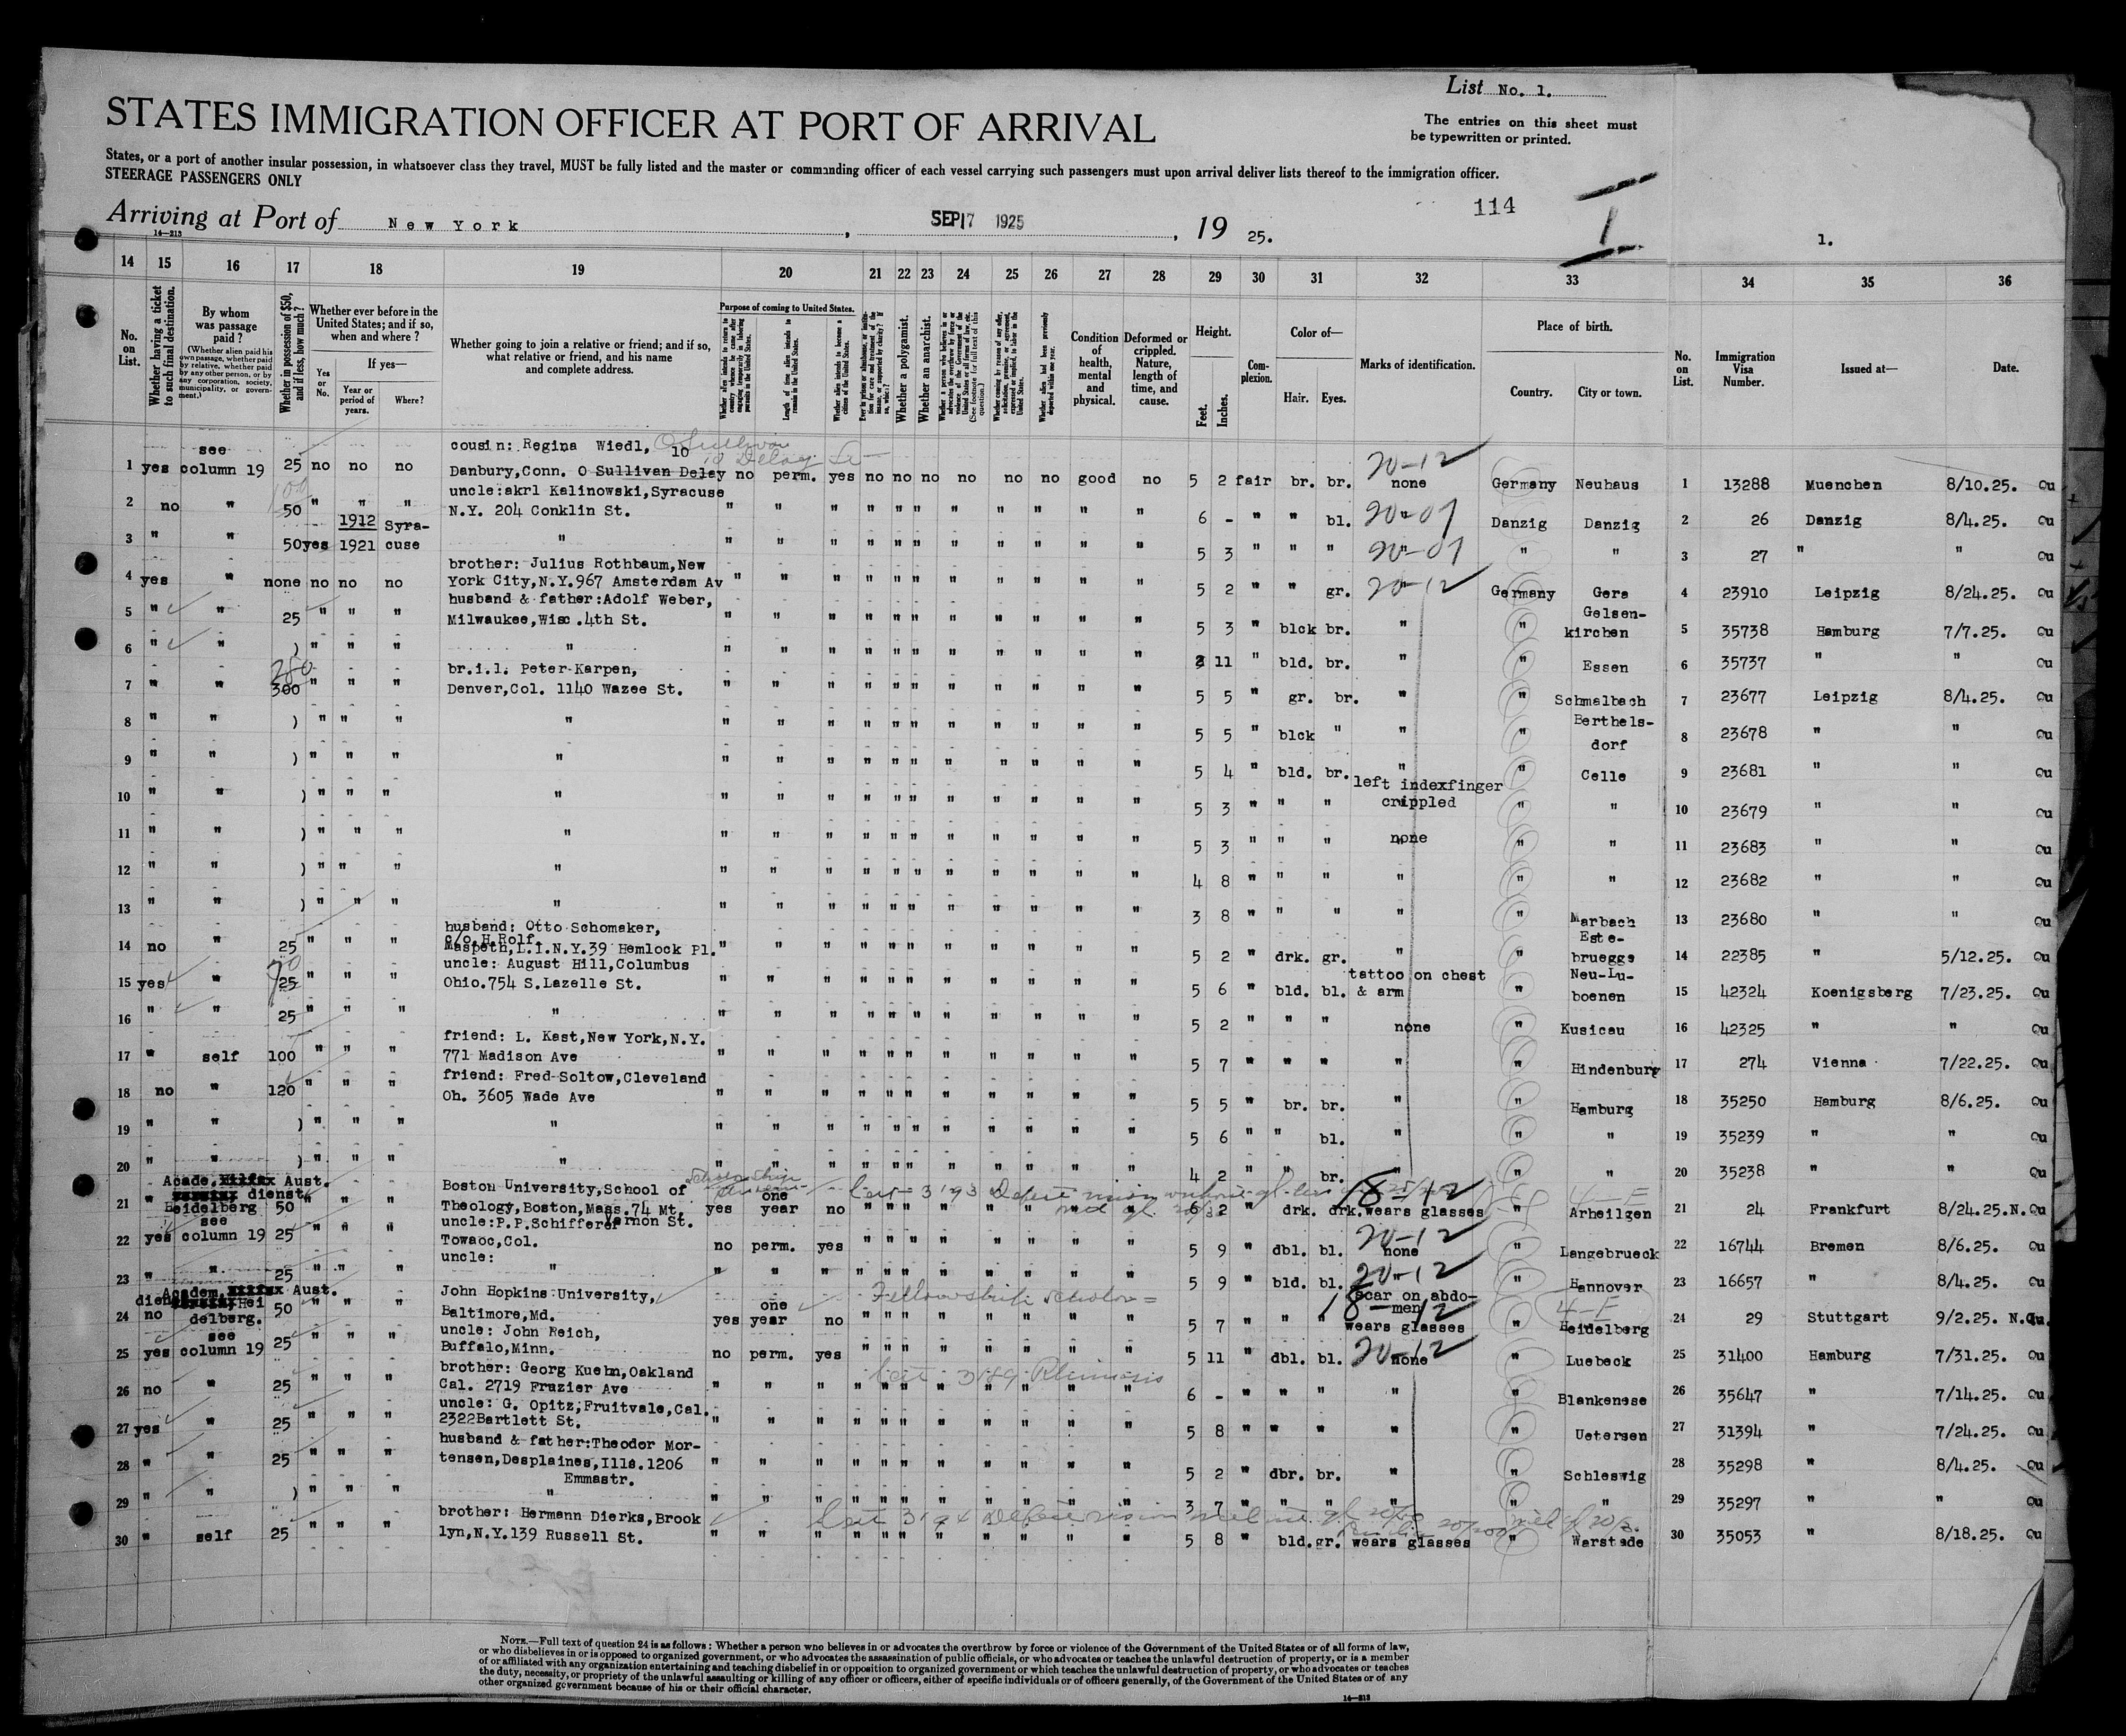 List No. 1.
STATES IMMIGRATION OFFICER AT PORT OF ARRIVAL
The entries on this sheet must
be typewritten or printed.
States, or a port of another insular possession, in whatsoever class they travel, MUST be fully listed and the master or commanding officer of each vessel carrying such passengers must upon arrival deliver lists thereof to the immigration officer.
STEERAGE PASSENGERS ONLY
114
Arriving at Port of New York, SEP 17 1925, 19 25.
14—213
I
1.
14 15 16 17 18 19 20 21 22 23 24 25 26 27 28 29 30 31 32 33 34 35 36
No. on List.
Whether having a ticket to such final destination.
By whom was passage paid?
(Whether alien paid his own passage, whether paid by relative, whether paid by any other person, or by any corporation, society, municipality, or government.)
Whether in possession of $50, and if less, how much?
Whether ever before in the United States; and if so, when and where?
If yes—
Yes or No.
Year or period of years.
Where?
Whether going to join a relative or friend; and if so, what relative or friend, and his name and complete address.
Purpose of coming to United States.
Length of time alien intends to remain in the United States.
Whether alien intends to become a citizen of the United States.
Whether a polygamist.
Whether an anarchist.
Condition of health, mental and physical.
Deformed or crippled. Nature, length of time, and cause.
Height.
Feet. Inches.
Complexion.
Color of—
Hair. Eyes.
Marks of identification.
Place of birth.
Country. City or town.
No. on List.
Immigration Visa Number.
Issued at—
Date.
cousin: Regina Wiedl, 10 O Sullivan
see
1 yes column 19 25 no no no Danbury,Conn. O Sullivan Delay no perm. yes no no no no no no good no 5 2 fair br. br. 20-12 none Germany Neuhaus 1 13288 Muenchen 8/10.25. Qu
uncle:akrl Kalinowski,Syracuse
2 no " 100 50 " " " N.Y. 204 Conklin St. " " " " " " " " " " " 6 - " " bl. 20-01 " Danzig Danzig 2 26 Danzig 8/4.25. Qu
1912 Syra-
3 " " 50 yes 1921 cuse " " " " " " " " " " " " 5 3 " " " 20-01 " " " 3 27 " " Qu
brother: Julius Rothbaum,New
4 yes " none no no no York City,N.Y.967 Amsterdam Av " " " " " " " " " " " 5 2 " " gr. 20-12 Germany Gera 4 23910 Leipzig 8/24.25. Qu
husband & father:Adolf Weber, Gelsen-
5 " " 25 " " " Milwaukee,Wisc.4th St. " " " " " " " " " " " 5 3 " blck br. " " kirchen 5 35738 Hamburg 7/7.25. Qu
6 " " ) " " " " " " " " " " " " " " " 2 11 " bld. br. " " Essen 6 35737 " " Qu
br.i.l. Peter Karpen,
7 " " 280 300 " " " Denver,Col. 1140 Wazee St. " " " " " " " " " " " 5 5 " gr. br. " " Schmalbach 7 23677 Leipzig 8/4.25. Qu
Berthels-
8 " " ) " " " " " " " " " " " " " " " 5 5 " blck " " " dorf 8 23678 " " Qu
9 " " ) " " " " " " " " " " " " " " " 5 4 " bld. br. " " Celle 9 23681 " " Qu
left indexfinger
10 " " ) " " " " " " " " " " " " " " " 5 3 " " " crippled " " 10 23679 " " Qu
11 " " ) " " " " " " " " " " " " " " " 5 3 " " " none " " 11 23683 " " Qu
12 " " ) " " " " " " " " " " " " " " " 4 8 " " " " " " 12 23682 " " Qu
13 " " ) " " " " " " " " " " " " " " " 3 8 " " " " " Marbach 13 23680 " " Qu
husband: Otto Schomaker,
c/o.H.Rolf. Este-
14 no " 25 " " " Maspeth,L.I.N.Y.39 Hemlock Pl. " " " " " " " " " " " 5 2 " drk. gr. " " bruegge 14 22385 " 5/12.25. Qu
uncle: August Hill,Columbus tattoo on chest Neu-Lu-
15 yes " 70 25 " " " Ohio.754 S.Lazelle St. " " " " " " " " " " " 5 6 " bld. bl. & arm " boenen 15 42324 Koenigsberg 7/23.25. Qu
16 " " 25 " " " " " " " " " " " " " " " 5 2 " " " none " Kusicau 16 42325 " " Qu
friend: L. Kast,New York,N.Y.
17 " self 100 " " " 771 Madison Ave " " " " " " " " " " " 5 7 " " " " " Hindenburg 17 274 Vienna 7/22.25. Qu
friend: Fred Soltow,Cleveland
18 no " 120 " " " Oh. 3605 Wade Ave " " " " " " " " " " " 5 5 " br. br. " " Hamburg 18 35250 Hamburg 8/6.25. Qu
19 " " ) " " " " " " " " " " " " " " " 5 6 " " bl. " " " 19 35239 " " Qu
20 " " ) " " " " " " " " " " " " " " " 4 2 " " br. " " " 20 35238 " " Qu
Acade. Aust. Boston University,School of one 18-12 4-E
dienst.
21 " Heidelberg 50 " " " Theology,Boston,Mass.74 Mt. Vernon St. yes year no " " " " " " " " 6 2 " drk. drk. wears glasses " Arheilgen 21 24 Frankfurt 8/24.25.N.Qu
see uncle:P.P.Schifferer
22 yes column 19 25 " " " Towaoc,Col. no perm. yes " " " " " " " " 5 9 " dbl. bl. 20-12 none " Langebrueck 22 16744 Bremen 8/6.25. Qu
uncle:
23 " " 25 " " " " " " " " " " " " " " " 5 9 " bld. bl. 20-12 " Hannover 23 16657 " 8/4.25. Qu
Academ. Aust. John Hopkins University, Fellowship scholar= scar on abdo-
dienst Hei one 18-12 men 4-E
24 no delberg. 50 " " " Baltimore,Md. yes year no " " " " " " " " 5 7 " " " wears glasses " Heidelberg 24 29 Stuttgart 9/2.25. N.Qu.
see uncle: John Reich,
25 yes column 19 25 " " " Buffalo,Minn. no perm. yes " " " " " " " " 5 11 " dbl. bl. 20-12 none " Luebeck 25 31400 Hamburg 7/31.25. Qu
brother: Georg Kuehn,Oakland
26 no " 25 " " " Cal. 2719 Frazier Ave " " " " " " " " " " " 6 - " " " " " Blankenese 26 35647 " 7/14.25. Qu
uncle: G. Opitz,Fruitvale,Cal.
27 yes " 25 " " " 2322Bartlett St. " " " " " " " " " " " 5 8 " " " " " Uetersen 27 31394 " 7/24.25. Qu
husband & father:Theodor Mor-
28 " " 25 " " " tensen,Desplaines,Ills.1206 " " " " " " " " " " " 5 2 " dbr. br. " " Schleswig 28 35298 " 8/4.25. Qu
Emmastr.
29 " " ) " " " " " " " " " " " " " " " 3 7 " " " " " " 29 35297 " " Qu
brother: Hermann Dierks,Brook
30 " self 25 " " " lyn,N.Y.139 Russell St. " " " " " " " " " " " 5 8 " bld. gr. wears glasses " Warstade 30 35053 " 8/18.25. Qu
NOTE.—Full text of question 24 is as follows: Whether a person who believes in or advocates the overthrow by force or violence of the Government of the United States or of all forms of law,
or who disbelieves in or is opposed to organized government, or who advocates the assassination of public officials, or who advocates or teaches the unlawful destruction of property, or is a member
of or affiliated with any organization entertaining and teaching disbelief in or opposition to organized government or which teaches the unlawful destruction of property, or who advocates or teaches
the duty, necessity, or propriety of the unlawful assaulting or killing of any officer or officers, either of specific individuals or of officers generally, of the Government of the United States or of any
other organized government because of his or their official character.
14—213